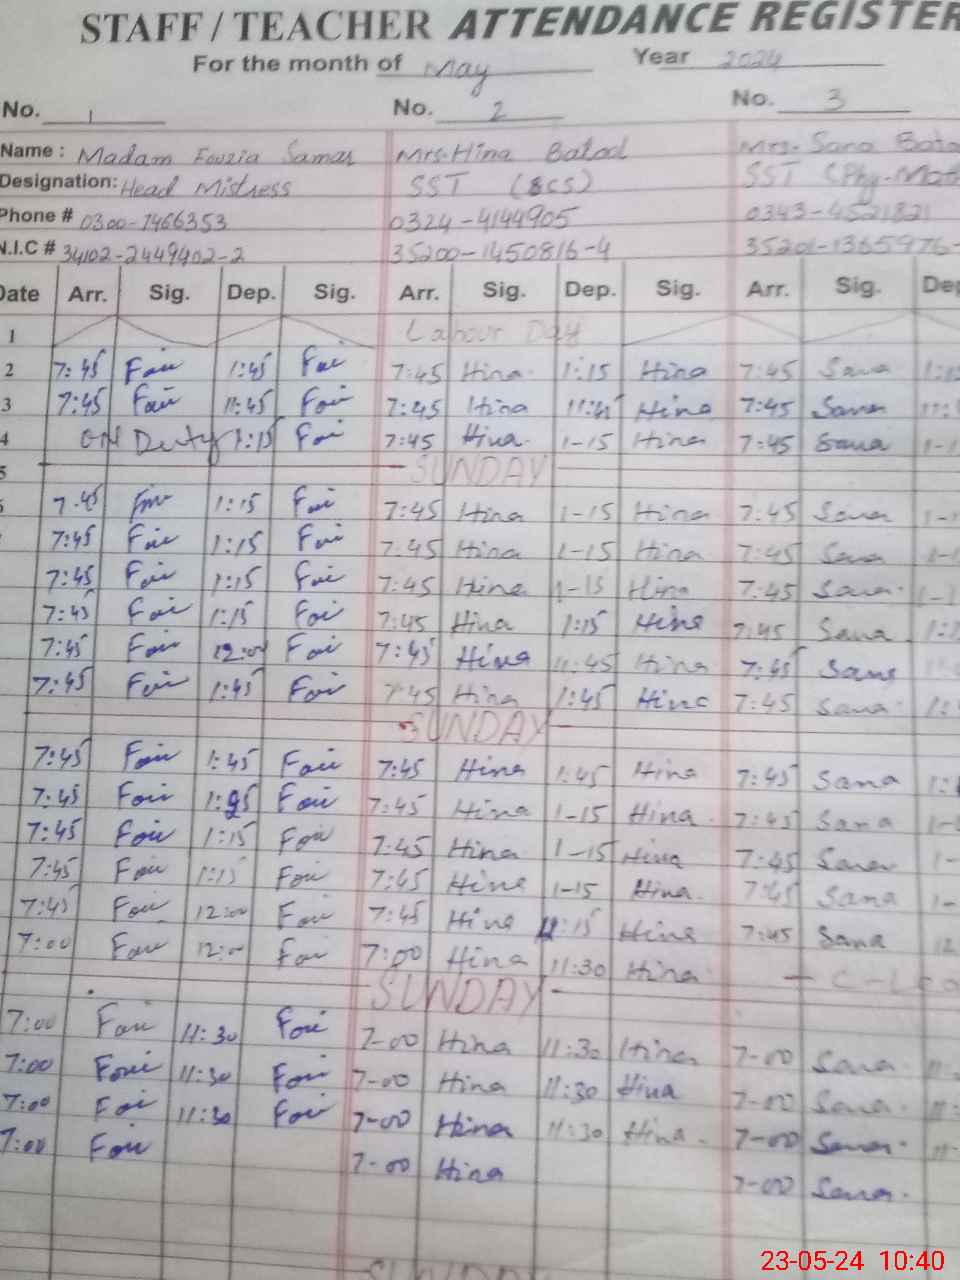 STAFF / TEACHER ATTENDANCE REGISTER
For the month of May Year 2024
No. 1 No. 2 No. 3
Name : Madam Fouzia Samar Mrs. Hina Batool Mrs. Sana
Designation: Head Mistress SST (SCS) SST (Phy-Mat
Phone # 0300-7466353 0324-4144905 0343-4521821
N.I.C # 34102-2449402-2 35200-1450816-4 35201-1365976-
Date Arr. Sig. Dep. Sig. Arr. Sig. Dep. Sig. Arr. Sig. Dep
1 Labour Day
2 7:45 Fou 1:45 Fou 7:45 Hina 1:15 Hina 7:45 Sana
3 7:45 Fou 11:45 Fou 7:45 Hina 11:45 Hina 7:45 Sana
4 ON Duty 1:15 Fou 7:45 Hina 1-15 Hina 7:45 Sana
5 SUNDAY
7:45 Fou 1:15 Fou 7:45 Hina 1-15 Hina 7:45 Sana
7:45 Fou 1:15 Fou 7:45 Hina 1-15 Hina 7:45 Sana
7:45 Fou 1:15 Fou 7:45 Hina 1-15 Hina 7:45 Sana
7:45 Fou 1:15 Fou 7:45 Hina 1:15 Hina 7:45 Sana
7:45 Fou 12:00 Fou 7:45 Hina 11:45 Hina 7:45 Sana
7:45 Fou 1:45 Fou 7:45 Hina 1:45 Hina 7:45 Sana
SUNDAY
7:45 Fou 1:45 Fou 7:45 Hina 1:45 Hina 7:45 Sana
7:45 Fou Fou 7:45 Hina 1-15 Hina 7:45 Sana
7:45 Fou 1:15 Fou 7:45 Hina 1-15 Hina 7:45 Sana
7:45 Fou 1:15 Fou 7:45 Hina 1-15 Hina 7:45 Sana
7:45 Fou 12:00 Fou 7:45 Hina Hina 7:45 Sana 12
7:00 Fou 12:00 Fou 7:00 Hina 11:30 Hina
SUNDAY
7:00 Fou 11:30 Fou 7-00 Hina 11:30 Hina 7-00 Sana
7:00 Fou 11:30 Fou 7-00 Hina 11:30 Hina 7-00 Sana
7:00 Fou 11:30 Fou 7-00 Hina 11:30 Hina 7-00 Sana
7:00 Fou 7-00 Hina 7-00 Sana
SUNDAY
23-05-24 10:40